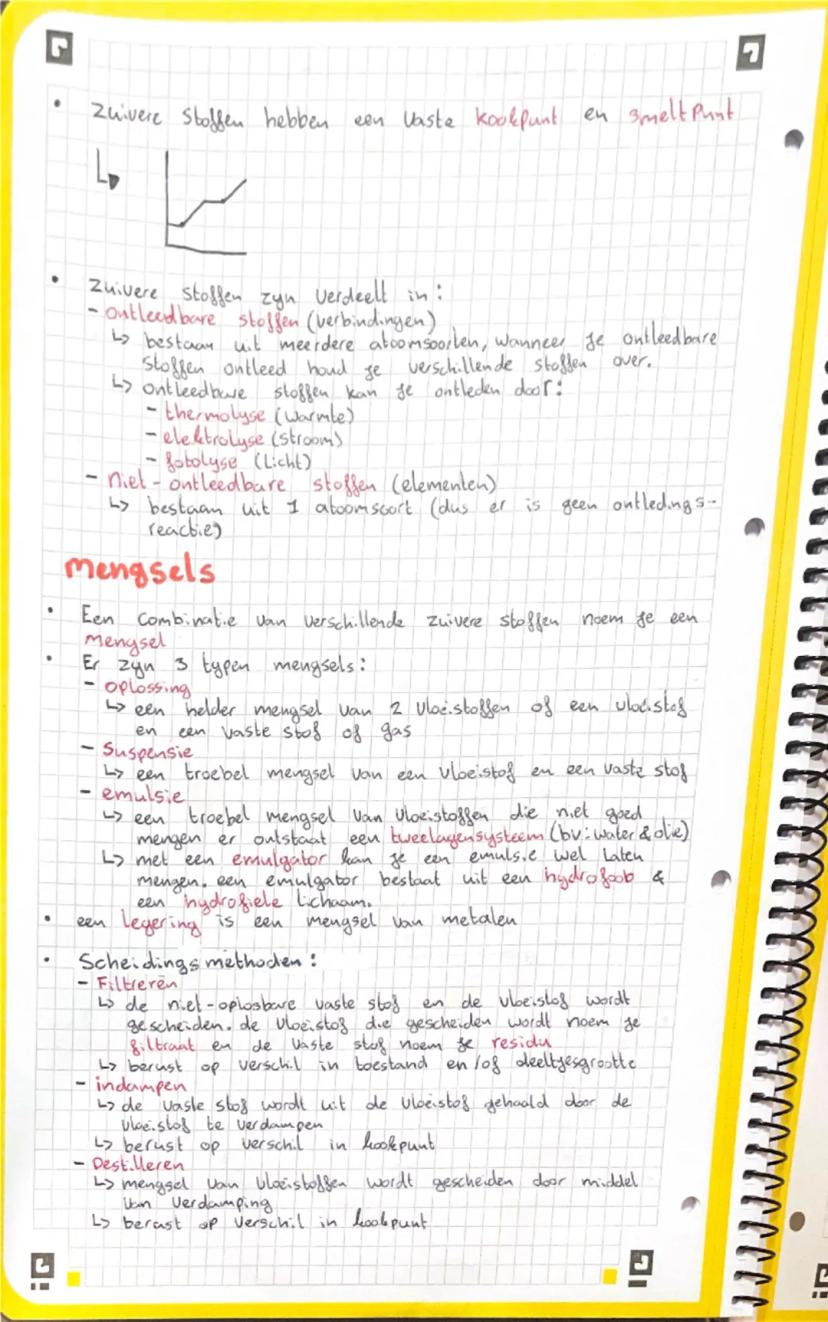 • Zuivere stoffen hebben een vaste kookpunt en smeltpunt
• Zuivere stoffen zyn verdeelt in:
- ontleedbare stoffen (verbindingen)
↳ bestaan uit meerdere atoomsoorten, wanneer je ontleedbare
stoffen ontleed houd je verschillende stoffen over.
↳ ontleedbare stoffen kan je ontleden door:
- thermolyse (warmte)
- elektrolyse (stroom)
- fotolyse (Licht)
- niet-ontleedbare stoffen (elementen)
↳ bestaan uit 1 atoomsoort (dus er is geen ontledings-
reactie)
mengsels
• Een combinatie van verschillende zuivere stoffen noem je een
mengsel
• Er zyn 3 typen mengsels:
- oplossing
↳ een helder mengsel van 2 vloeistoffen of een vloeistof
en een vaste stof of gas
- Suspensie
↳ een troebel mengsel van een vloeistof en een vaste stof
- emulsie
↳ een troebel mengsel van vloeistoffen die niet goed
mengen er ontstaat een tweelagensysteem (bv: water & olie)
↳ met een emulgator kan je een emulsie wel laten
mengen. een emulgator bestaat uit een hydrofoob &
een hydrofiele lichaam.
• een legering is een mengsel van metalen
• Scheidingsmethoden:
- Filtreren
↳ de niet-oplosbare vaste stof en de vloeistof wordt
gescheiden. de vloeistof die gescheiden wordt noem je
filtraat en de vaste stof noem je residu
↳ berust op verschil in toestand en/of deeltjesgrootte
- indampen
↳ de vaste stof wordt uit de vloeistof gehaald door de
vloeistof te verdampen
↳ berust op verschil in kookpunt
- Destilleren
↳ mengsel van vloeistoffen wordt gescheiden door middel
van verdamping
↳ berust op verschil in kookpunt